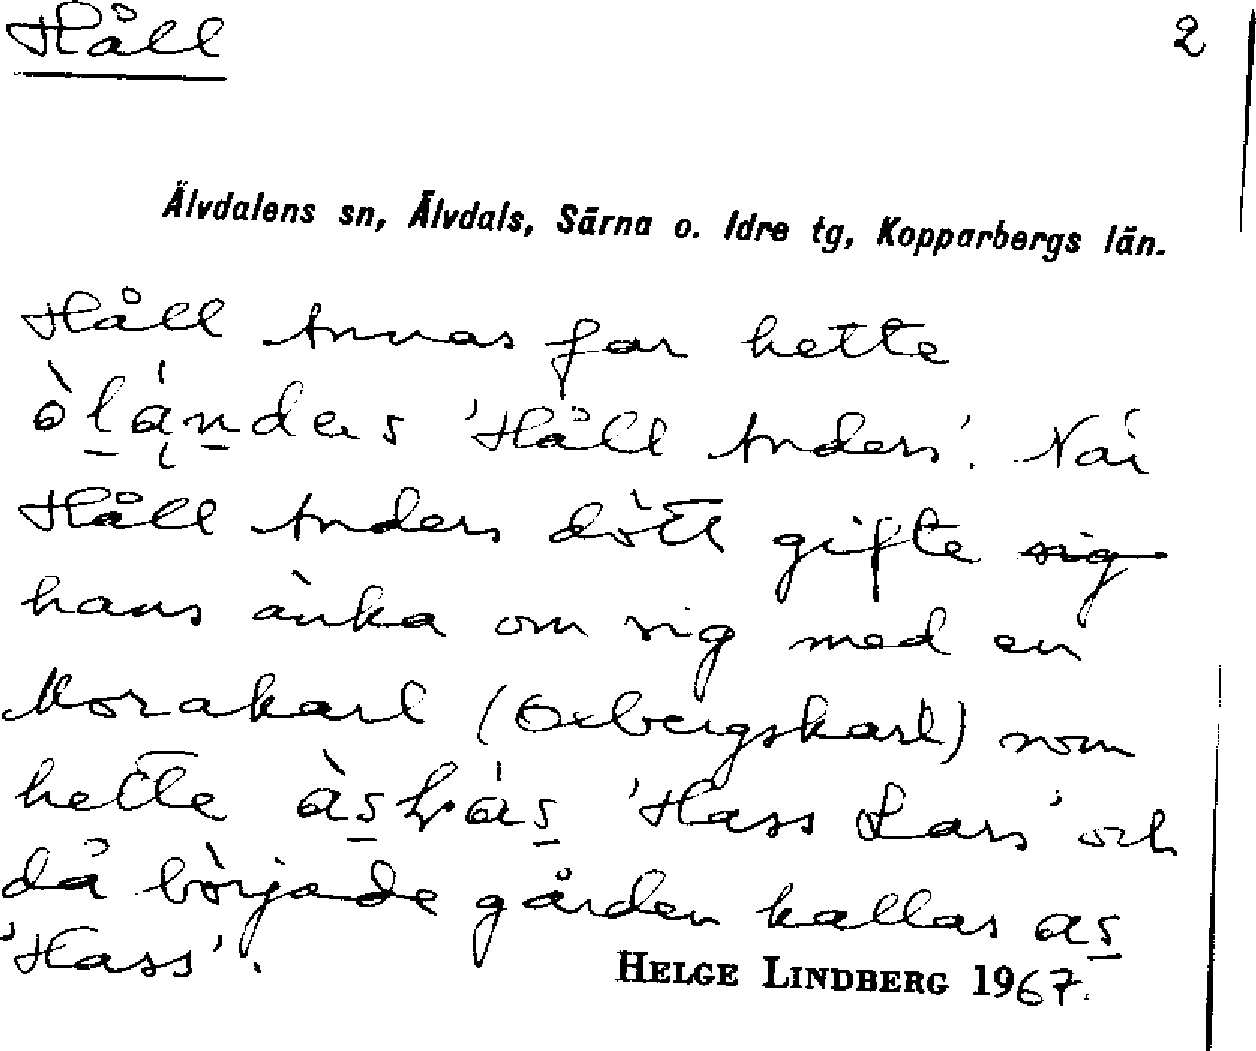 Håll 2
Älvdalens sn, Älvdals, Särna o. Idre tg, Kopparbergs län.
Håll Annas far hette
'Håll Anders'. När
Håll Anders dött gifte sig
hans änka om sig med en
Morakarl (Oxbergskarl) som
hette 'Hass Lars' och
då började gården kallas as̲
'Hass'.
HELGE LINDBERG 1967.